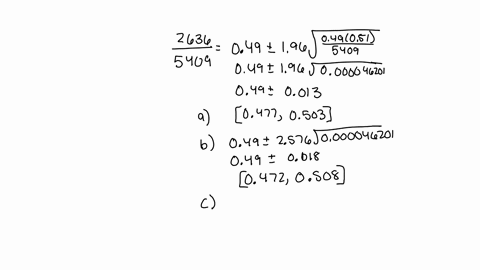 2636/5409 = 0.49 ± 1.96 √(0.49(0.51)/5409)
0.49 ± 1.96 √0.000046201
0.49 ± 0.013
a) [0.477, 0.503]
b) 0.49 ± 2.576 √0.000046201
0.49 ± 0.018
[0.472, 0.508]
c)